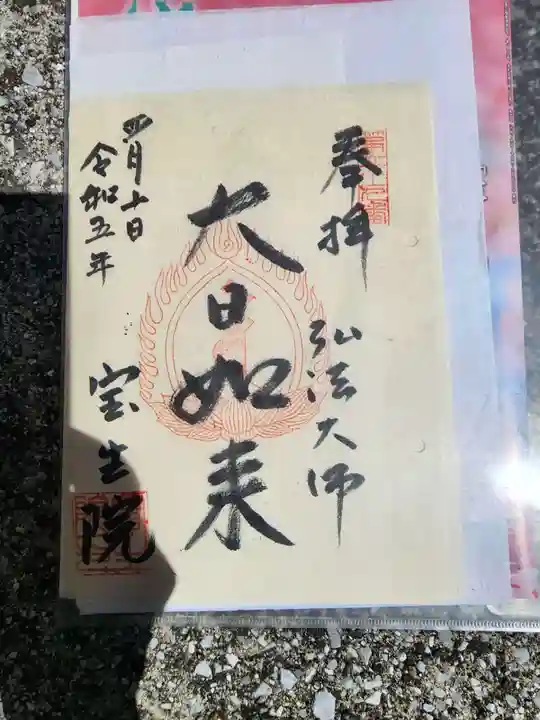 奉拝
弘法大師
大日如来
四月十日
令和五年
宝生院